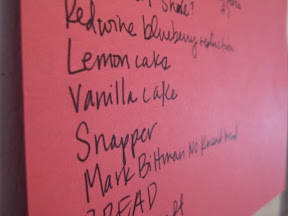 Shale?
Red wine blueberry reduction
Lemon cake
Vanilla cake
Snapper
Mark Bittman No Knead bread
BREAD